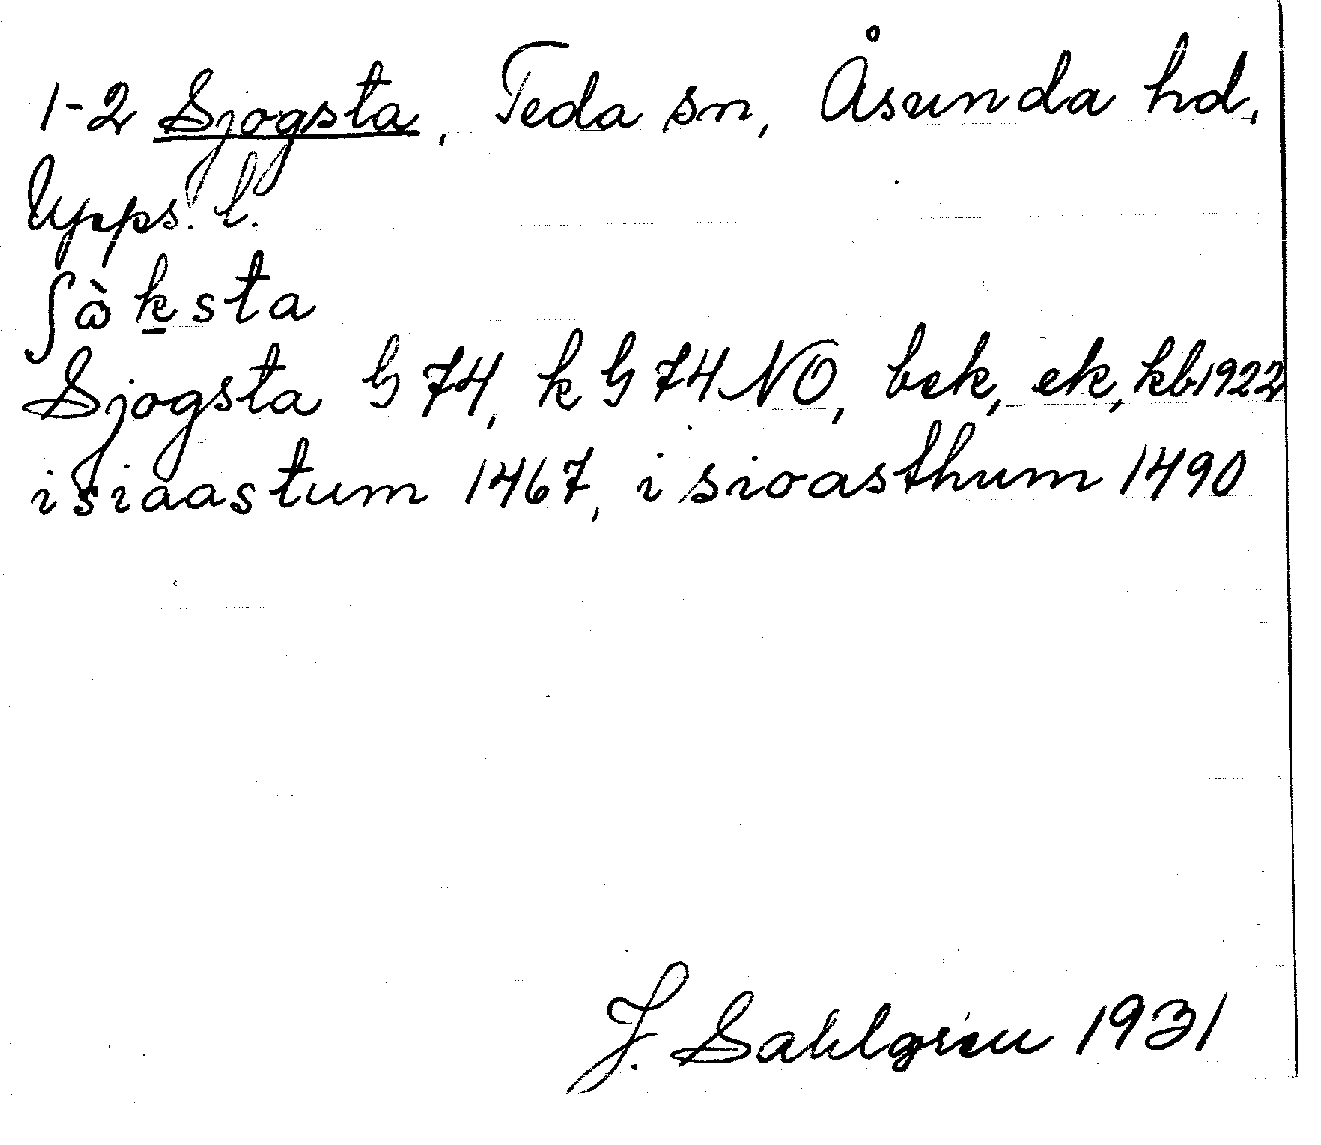 1-2 Sjogsta, Teda sn, Åsunda hd,
Upps. l.
ʃὼksta
Sjogsta G 74, k G 74 NO, bek, ek, kb 1922
i siaastum 1467, i sioasthum 1490
J. Sahlgren 1931